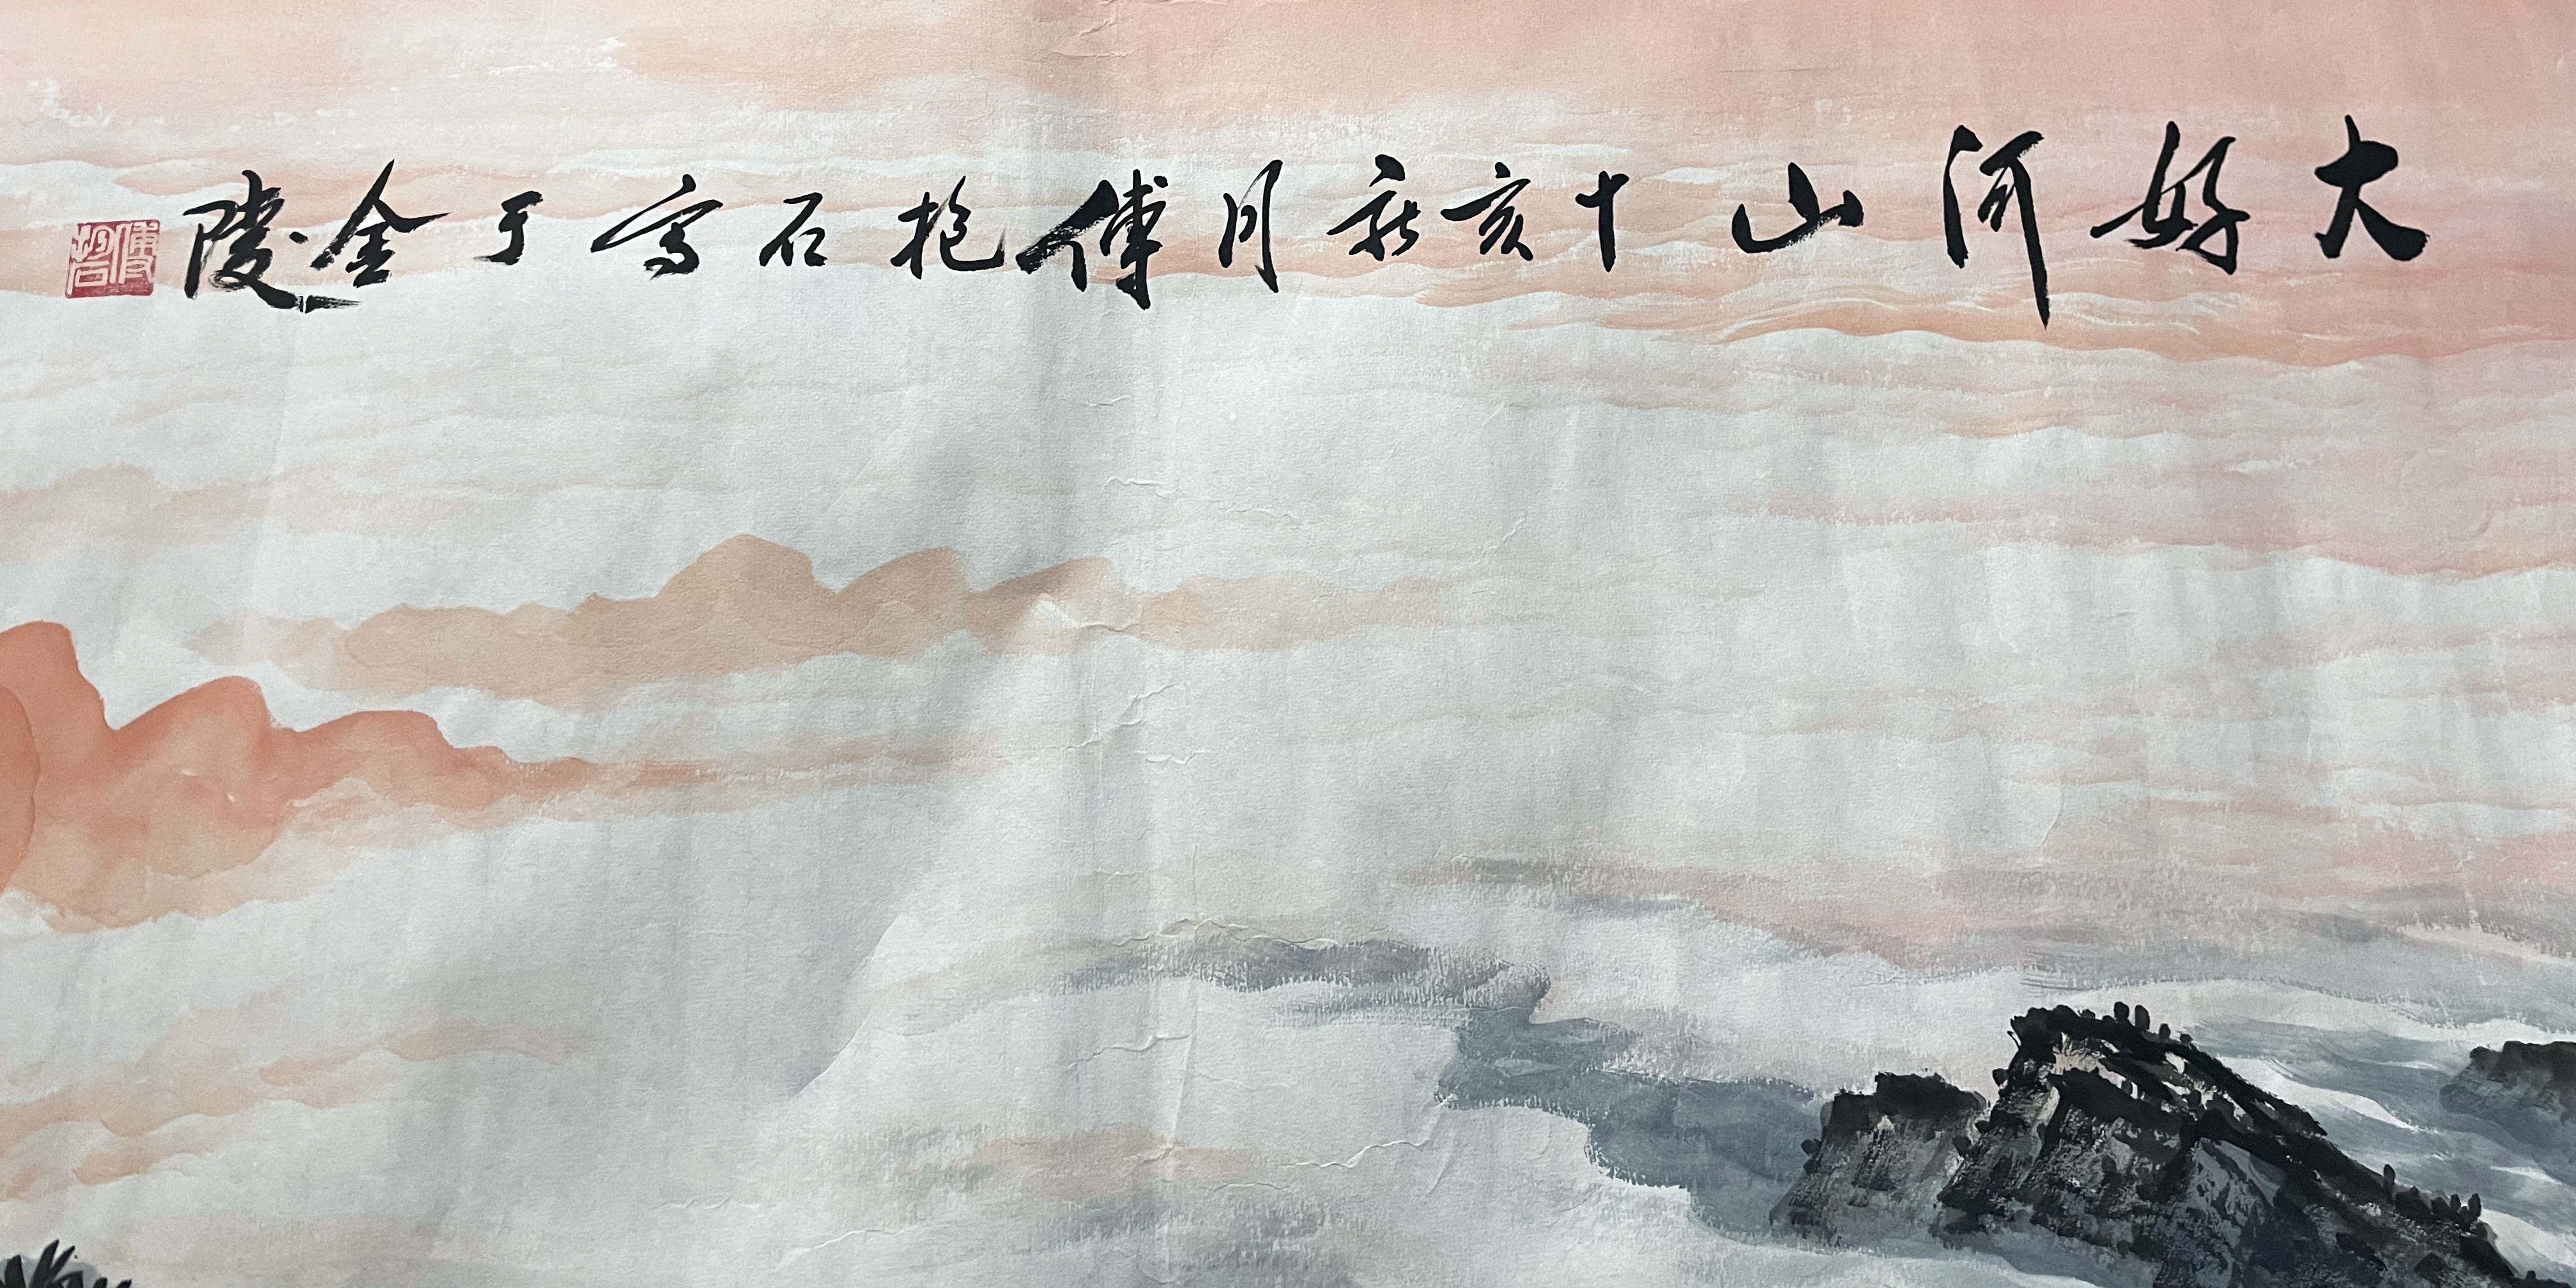 大好河山 十亥新月傅抱石寫于金陵
傅抱石